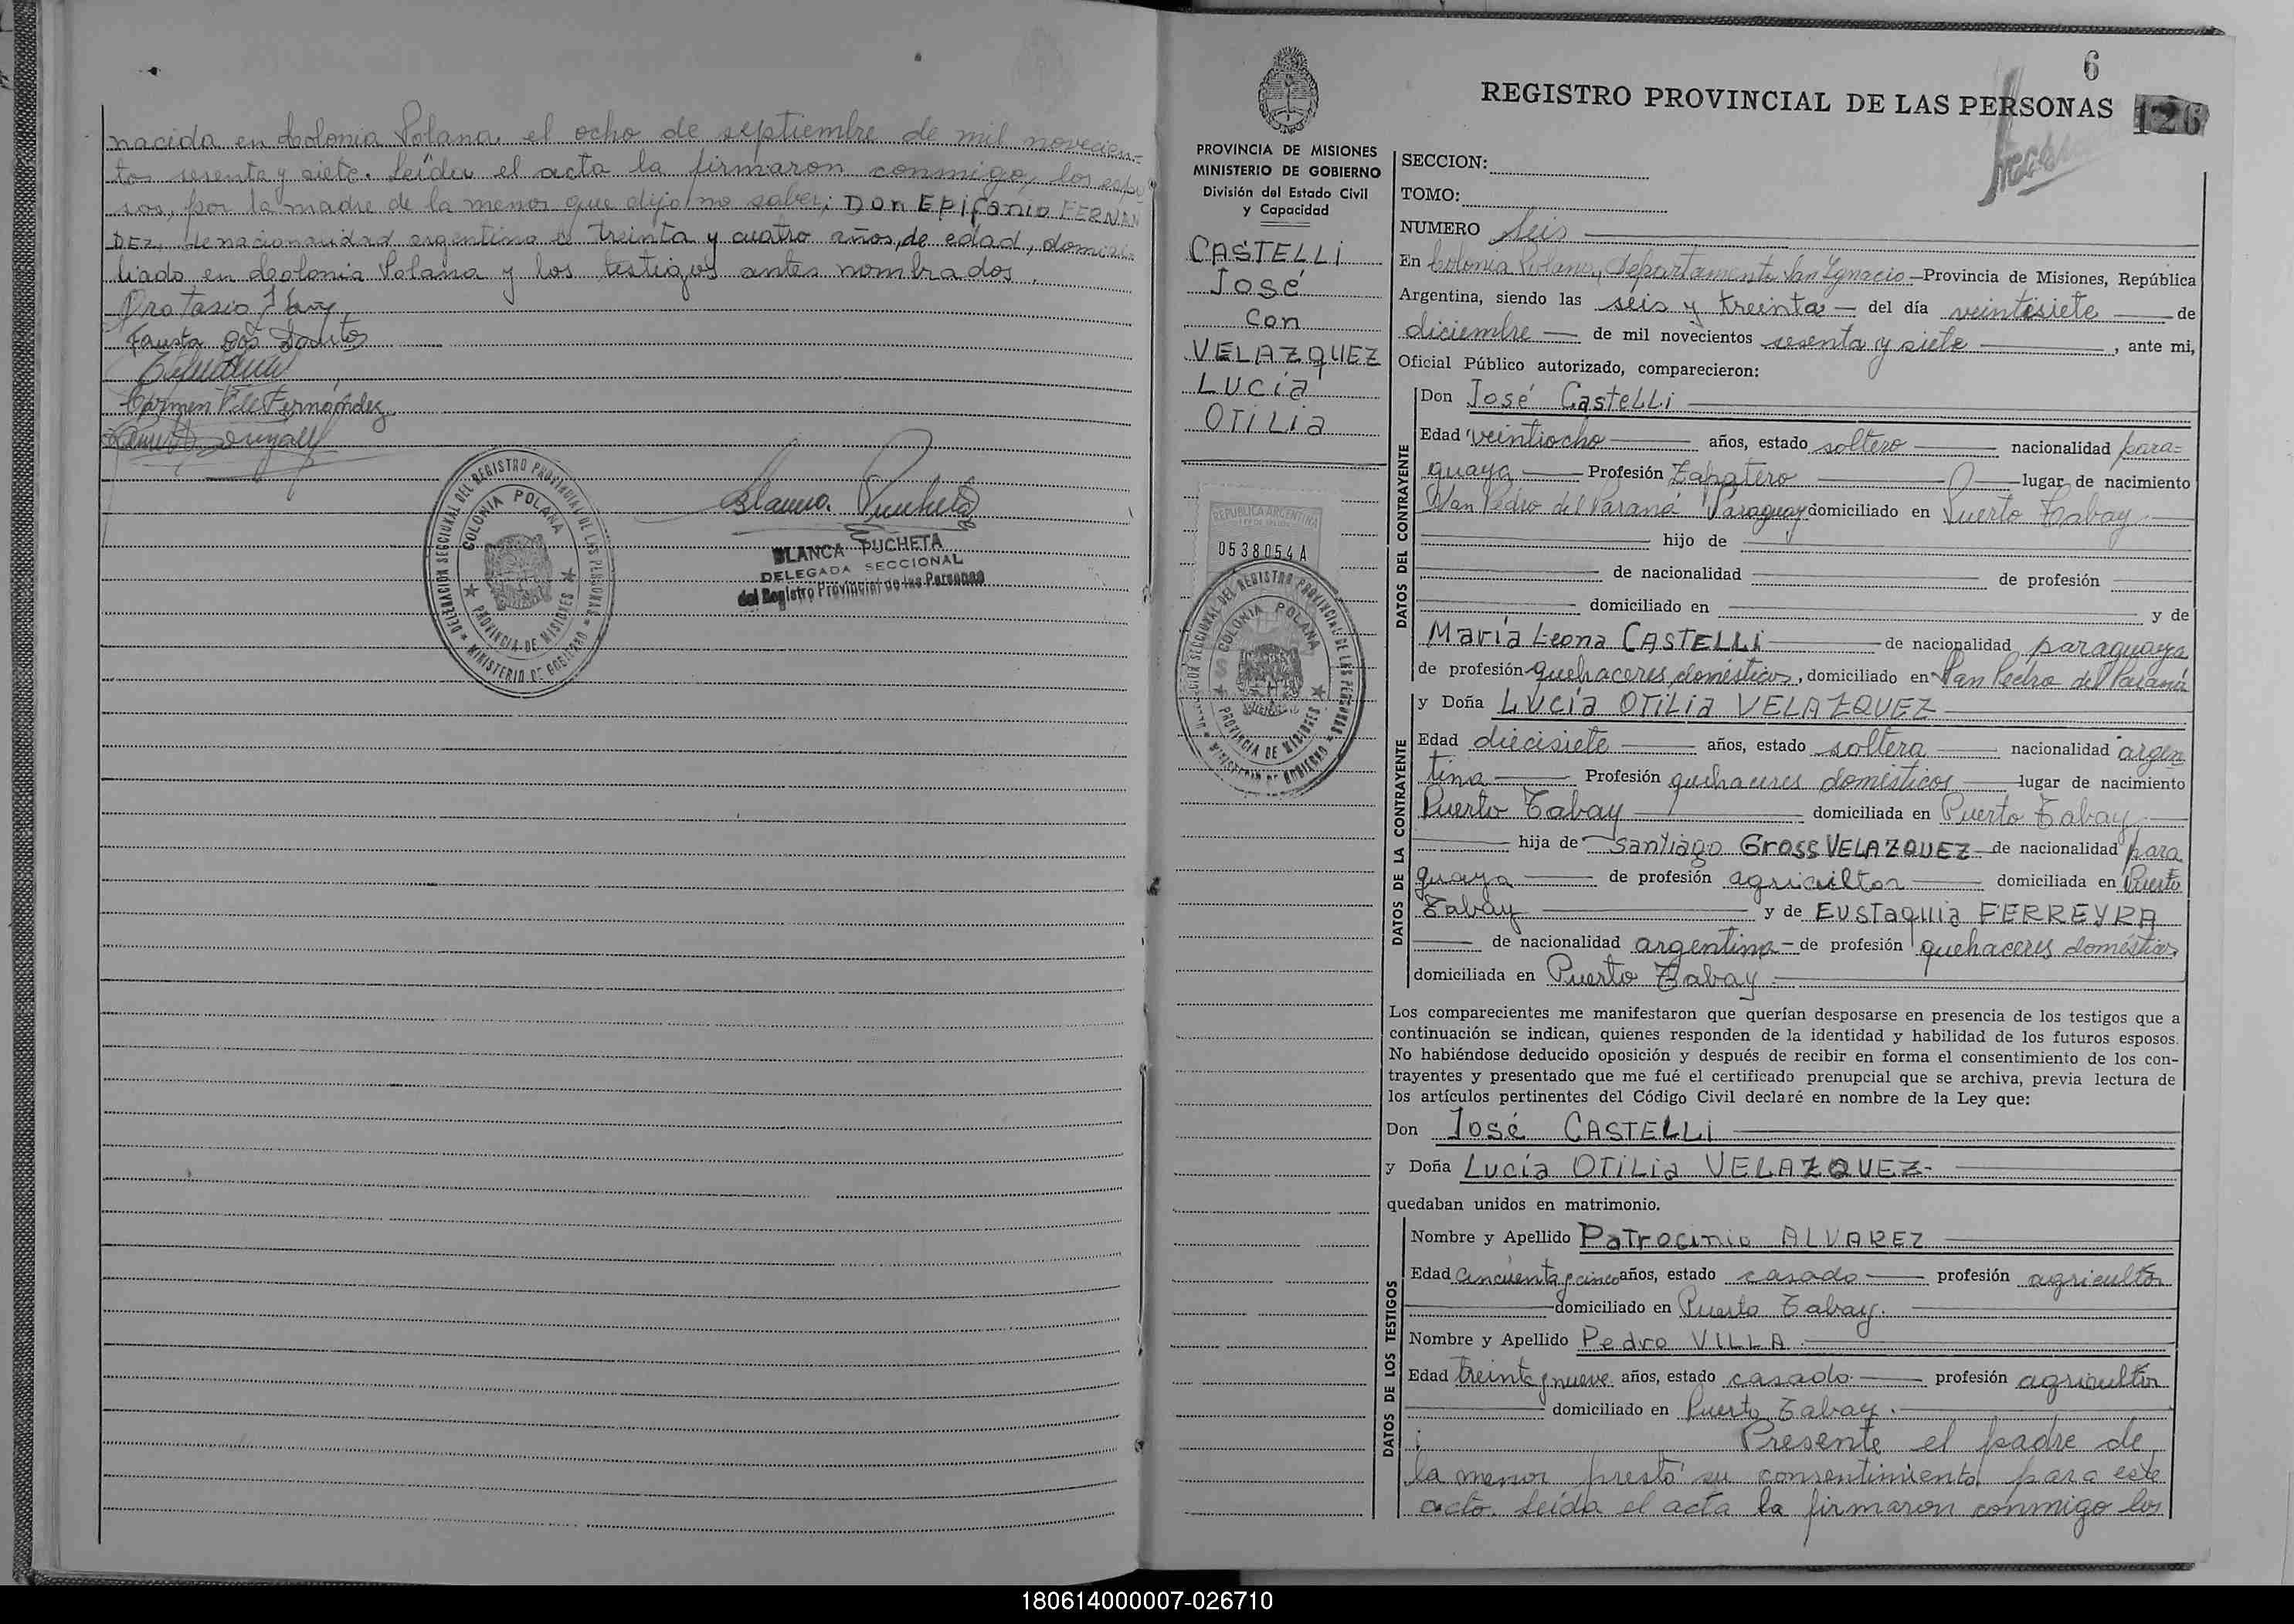 nacida en Colonia Polana el ocho de septiembre de mil novecien-
tos sesenta y siete. Leída el acta la firmaron conmigo, los espo-
sos, por la madre de la menor que dijo no saber; Don Epifanio FERNAN
DEZ, de nacionalidad argentina de treinta y cuatro años, de edad, domici-
liado en Colonia Polana y los testigos antes nombrados.
Protasio
Fausta dos Santos
Carmen V. de Fernández
DELEGACION SECCIONAL DEL REGISTRO PROVINCIAL DE LAS PERSONAS
COLONIA POLANA
PROVINCIA DE MISIONES
MINISTERIO DE GOBIERNO
Blanca Pucheta
BLANCA PUCHETA
DELEGADA SECCIONAL
del Registro Provincial de las Personas
6
REGISTRO PROVINCIAL DE LAS PERSONAS 126
PROVINCIA DE MISIONES
MINISTERIO DE GOBIERNO
División del Estado Civil
y Capacidad
CASTELLI
José
con
VELAZQUEZ
LUCÍA
OTILIA
REPUBLICA ARGENTINA
0538054A
DELEGACION SECCIONAL DEL REGISTRO PROVINCIAL DE LAS PERSONAS
COLONIA POLANA
PROVINCIA DE MISIONES
MINISTERIO DE GOBIERNO
SECCION:
TOMO:
NUMERO Seis
En Colonia Polana, Departamento San Ygnacio - Provincia de Misiones, República
Argentina, siendo las seis y treinta del día veintisiete de
diciembre de mil novecientos sesenta y siete, ante mi,
Oficial Público autorizado, comparecieron:
DATOS DEL CONTRAYENTE
Don José Castelli
Edad veintiocho años, estado soltero nacionalidad para-
guaya Profesión Zapatero lugar de nacimiento
San Pedro del Paraná Paraguay domiciliado en Puerto Tabay.
hijo de
de nacionalidad de profesión
domiciliado en y de
María Leona CASTELLI de nacionalidad paraguaya
de profesión quehaceres domésticos, domiciliado en San Pedro del Paraná
DATOS DE LA CONTRAYENTE
y Doña LUCÍA OTILIA VELAZQUEZ
Edad diecisiete años, estado soltera nacionalidad argen
tina Profesión quehaceres domésticos lugar de nacimiento
Puerto Tabay domiciliada en Puerto Tabay.
hija de Santiago Gross VELAZQUEZ de nacionalidad para
guaya de profesión agricultor domiciliada en Puerto
Tabay y de EUSTAQUIA FERREYRA
de nacionalidad argentina - de profesión quehaceres domésticos
domiciliada en Puerto Tabay.
Los comparecientes me manifestaron que querían desposarse en presencia de los testigos que a
continuación se indican, quienes responden de la identidad y habilidad de los futuros esposos.
No habiéndose deducido oposición y después de recibir en forma el consentimiento de los con-
trayentes y presentado que me fué el certificado prenupcial que se archiva, previa lectura de
los artículos pertinentes del Código Civil declaré en nombre de la Ley que:
Don José CASTELLI
y Doña Lucía OTILIA VELAZQUEZ-
quedaban unidos en matrimonio.
DATOS DE LOS TESTIGOS
Nombre y Apellido Patrocinio ALVAREZ
Edad cincuenta y cinco años, estado casado profesión agricultor
domiciliado en Puerto Tabay.
Nombre y Apellido Pedro VILLA
Edad treinta y nueve años, estado casado profesión agricultor
domiciliado en Puerto Tabay.
Presente el padre de
la menor prestó su consentimiento para este
acto. Leída el acta la firmaron conmigo los
180614000007-026710